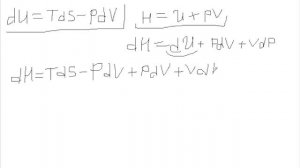 dU=TdS-PdV H=U+PV
dH=dU+PdV+VdP
dH=TdS-PdV+PdV+Vdp